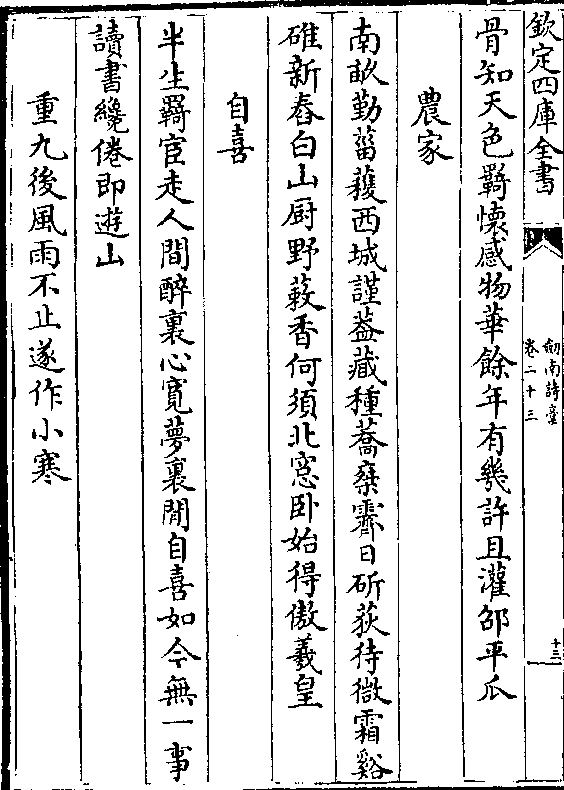 欽定四庫全書
劍南詩藁
卷二十三
十三
骨知天色羇懷感物華餘年有幾許且灌邵平瓜
農家
南畝勤菑穫西城謹葢藏種蕎乗霽日斫荻待微霜谿
碓新舂白山厨野蔌香何須北窓卧始得傲羲皇
自喜
半生羇宦走人間醉裏心寛夢裏閒自喜如今無一事
讀書纔倦即遊山
重九後風雨不止遂作小寒